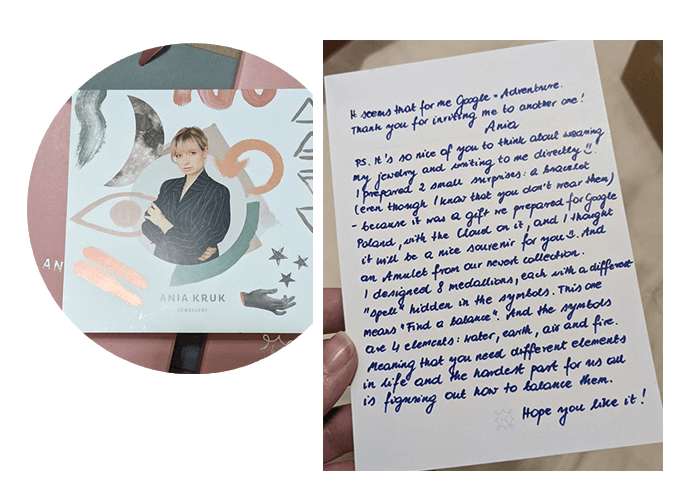 AN
ANIA KRUK
JEWELLERY
It seems that for me Google = Adventure.
Thank you for inviting me to another one!
Ania
PS. It's so nice of you to think about wearing
my jewelry and writing to me directly ☺.
I prepared 2 small surprises: a bracelet
(even though I know that you don't wear them)
- because it was a gift we prepared for Google
Poland, with the Cloud on it, and I thought
it will be a nice souvenir for you ☺. And
an Amulet from our nevest collection.
I designed 8 medallions, each with a different
"spell" hidden in the symbols. This one
means "Find a balance". And the symbols
are 4 elements: water, earth, air and fire.
Meaning that you need different elements
in life and the hardest part for us all
is figuring out how to balance them.
Hope you like it!